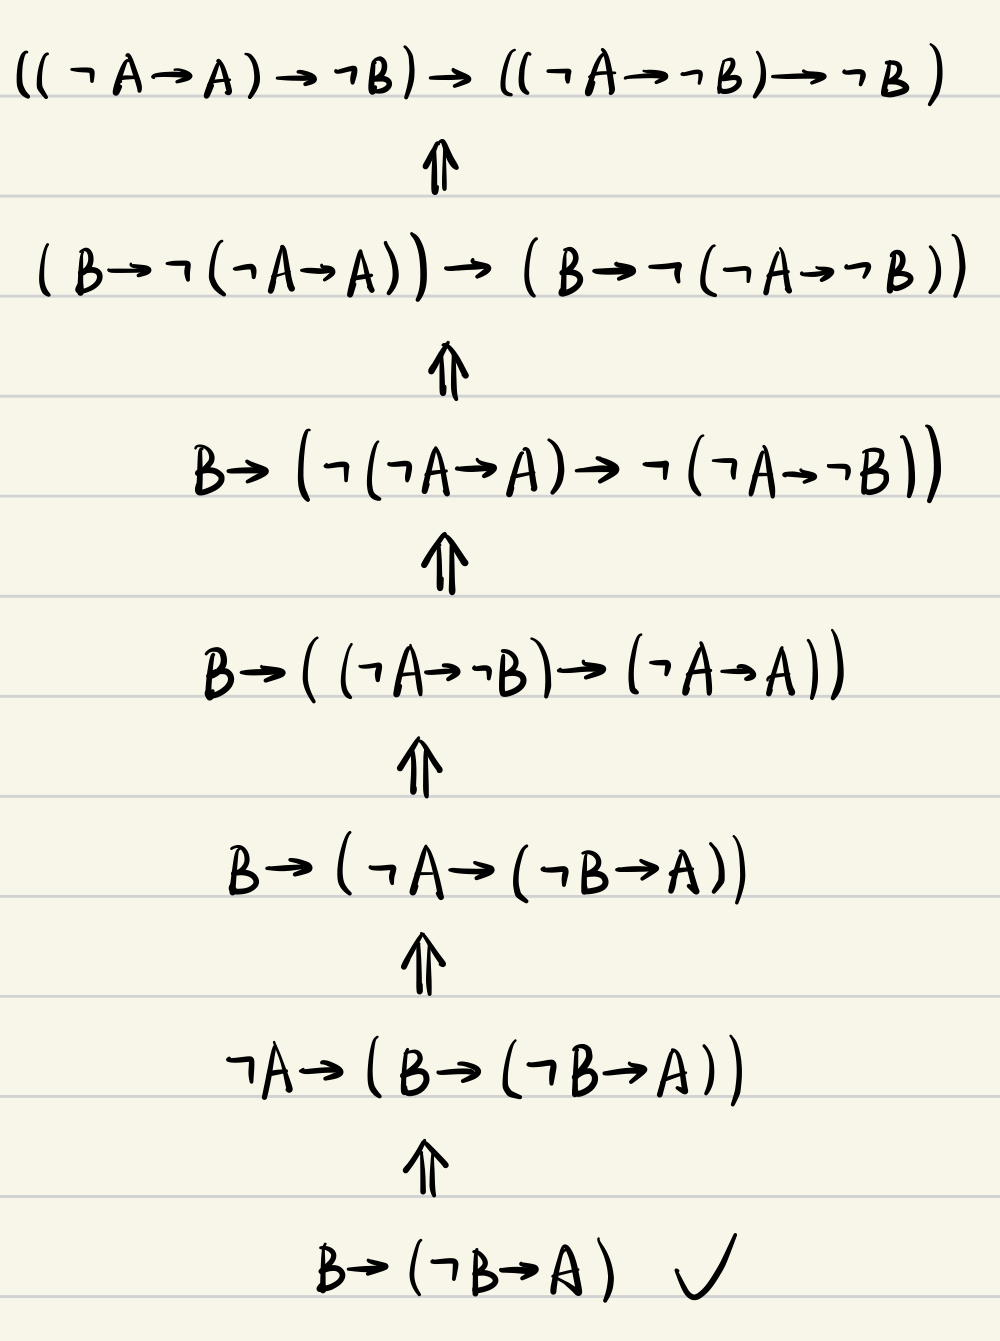 ((¬A→A)→¬B)→((¬A→¬B)→¬B)
⇑
(B→¬(¬A→A))→(B→¬(¬A→¬B))
⇑
B→(¬(¬A→A)→¬(¬A→¬B))
⇑
B→((¬A→¬B)→(¬A→A))
⇑
B→(¬A→(¬B→A))
⇑
¬A→(B→(¬B→A))
⇑
B→(¬B→A) ✓